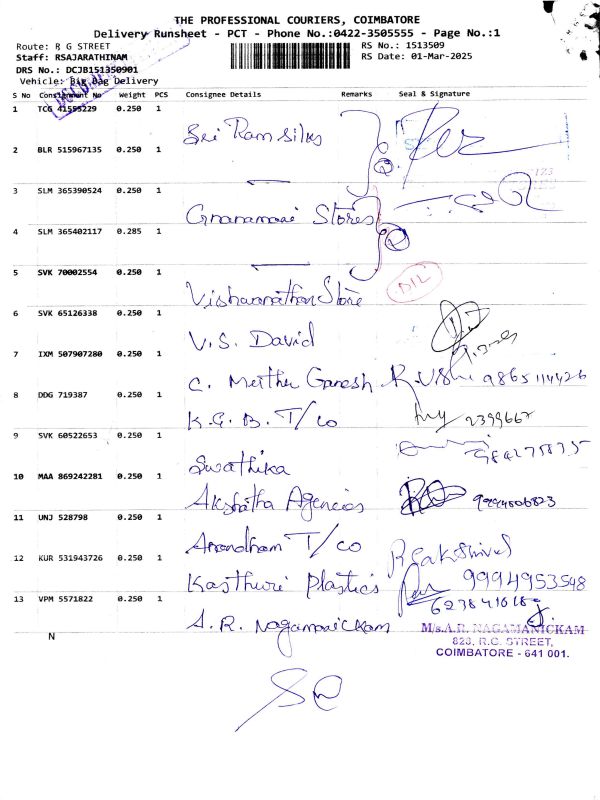 THE PROFESSIONAL COURIERS, COIMBATORE
Delivery Runsheet - PCT - Phone No.:0422-3505555 - Page No.:1
Route: R G STREET
RS No.: 1513509
Staff: RSAJARATHINAM
RS Date: 01-Mar-2025
DRS No.: DCJB151350901
Vehicle: Big Bag Delivery
S No Consignment No Weight PCS Consignee Details Remarks Seal & Signature
1 TCG 41555229 0.250 1 Sri Ram Silks
2 BLR 515967135 0.250 1
3 SLM 365390524 0.250 1 Gnanamani Stores
4 SLM 365402117 0.285 1
5 SVK 70002554 0.250 1 Vishwanathan Store D1L
6 SVK 65126338 0.250 1 V. S. David
7 IXM 507907280 0.250 1 C. Muthu Ganesh
8 DDG 719387 0.250 1 K. G. B. T/co 2399667
9 SVK 60522653 0.250 1 Swathika
10 MAA 869242281 0.250 1 Akshatha Agencies
11 UNJ 528798 0.250 1 T/co
12 KUR 531943726 0.250 1 Kasthuri Plastics 9994953548
13 VPM 5571822 0.250 1 A. R. Nagamanickam
N
M/s.A.R. NAGAMANICKAM
828, R.C. STREET,
COIMBATORE - 641 001.